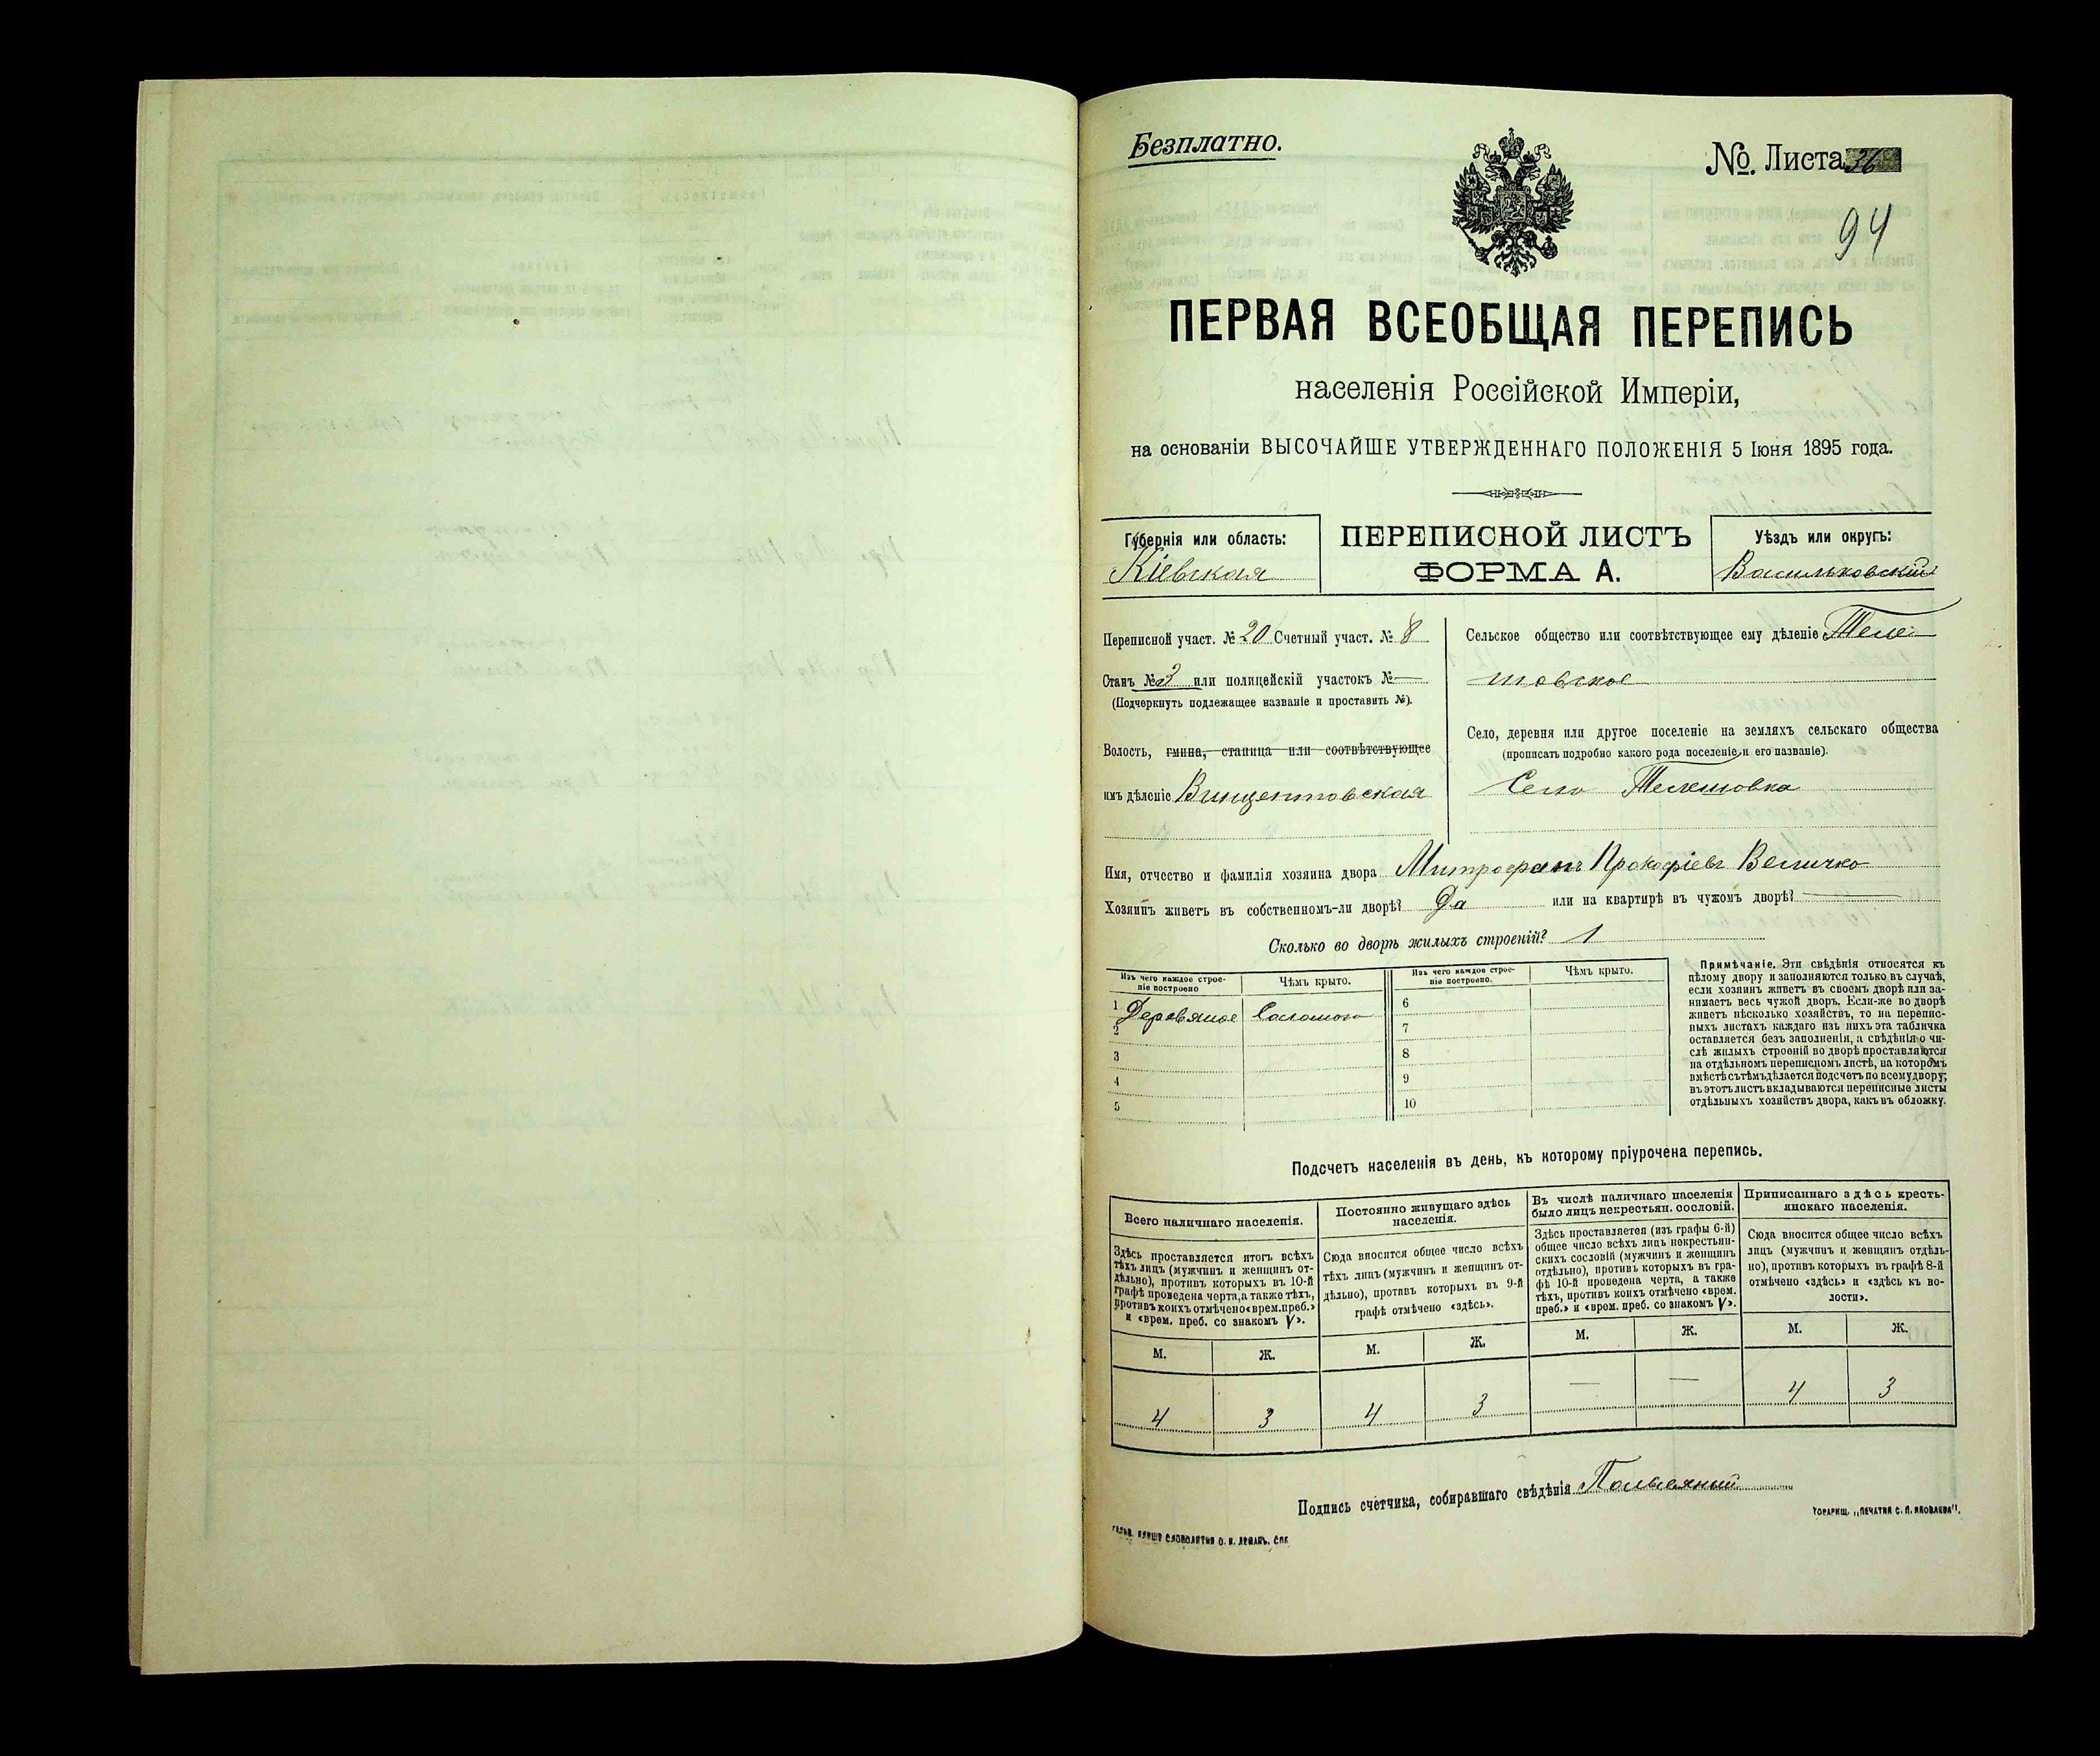 Безплатно.
№ Листа 36
94
ПЕРВАЯ ВСЕОБЩАЯ ПЕРЕПИСЬ
населенія Россійской Имперіи,
на основаніи ВЫСОЧАЙШЕ УТВЕРЖДЕННАГО ПОЛОЖЕНІЯ 5 Іюня 1895 года.
Губернія или область:
Кіевская
ПЕРЕПИСНОЙ ЛИСТЪ
ФОРМА А.
Уѣздъ или округъ:
Васильковскій
Переписной участ. № 20 Счетный участ. № 8
Станъ № 3 или полицейскій участокъ №
(Подчеркнуть подлежащее названіе и проставить №).
Волость, гмина, станица или соотвѣтствующее
имъ дѣленіе Винцентовская
Сельское общество или соотвѣтствующее ему дѣленіе Теле-
шовское
Село, деревня или другое поселеніе на земляхъ сельскаго общества
(прописать подробно какого рода поселеніе и его названіе).
Село Телешовка
Имя, отчество и фамилія хозяина двора Митрофанъ Прокофіевъ Величко
Хозяинъ живетъ въ собственномъ-ли дворѣ? Да или на квартирѣ въ чужомъ дворѣ?
Сколько во дворѣ жилыхъ строеній? 1
Изъ чего каждое строе-
ніе построено
Чѣмъ крыто.
1 Деревяное Соломою
2
3
4
5
Изъ чего каждое строе-
ніе построено.
Чѣмъ крыто.
6
7
8
9
10
Примѣчаніе. Эти свѣдѣнія относятся къ
цѣлому двору и заполняются только въ случаѣ,
если хозяинъ живетъ въ своемъ дворѣ или за-
нимаетъ весь чужой дворъ. Если-же во дворѣ
живетъ нѣсколько хозяйствъ, то на перепис-
ныхъ листахъ каждаго изъ нихъ эта табличка
оставляется безъ заполненія, а свѣдѣнія о чи-
слѣ жилыхъ строеній во дворѣ проставляются
на отдѣльномъ переписномъ листѣ, на которомъ
вмѣстѣ съ тѣмъ дѣлается подсчетъ по всему двору;
въ этотъ листъ вкладываются переписные листы
отдѣльныхъ хозяйствъ двора, какъ въ обложку.
Подсчетъ населенія въ день, къ которому пріурочена перепись.
Всего наличнаго населенія.
Здѣсь проставляется итогъ всѣхъ
тѣхъ лицъ (мужчинъ и женщинъ от-
дѣльно), противъ которыхъ въ 10-й
графѣ проведена черта, а также тѣхъ,
противъ коихъ отмѣчено «врем. преб.»
и «врем. преб. со знакомъ V».
М. Ж.
4 3
Постоянно живущаго здѣсь
населенія.
Сюда вносится общее число всѣхъ
тѣхъ лицъ (мужчинъ и женщинъ от-
дѣльно), противъ которыхъ въ 9-й
графѣ отмѣчено «здѣсь».
М. Ж.
4 3
Въ числѣ наличнаго населенія
было лицъ некрестьян. сословій.
Здѣсь проставляется (изъ графы 6-й)
общее число всѣхъ лицъ некрестьян-
скихъ сословій (мужчинъ и женщинъ
отдѣльно), противъ которыхъ въ гра-
фѣ 10-й проведена черта, а также
тѣхъ, противъ коихъ отмѣчено «врем.
преб.» и «врем. преб. со знакомъ V».
М. Ж.
— —
Приписаннаго здѣсь кресть-
янскаго населенія.
Сюда вносится общее число всѣхъ
лицъ (мужчинъ и женщинъ отдѣль-
но), противъ которыхъ въ графѣ 8-й
отмѣчено «здѣсь» и «здѣсь къ во-
лости».
М. Ж.
4 3
Подпись счетчика, собиравшаго свѣдѣнія
ТОВАРИЩ. „ПЕЧАТНЯ С. П. ЯКОВЛЕВА".
СЛОВОЛИТНИ О. И. ЛЕМАНЪ. СПБ